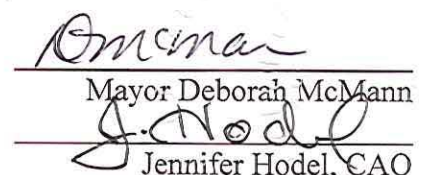 DMcMann
Mayor Deborah McMann
J. Hodel
Jennifer Hodel, CAO